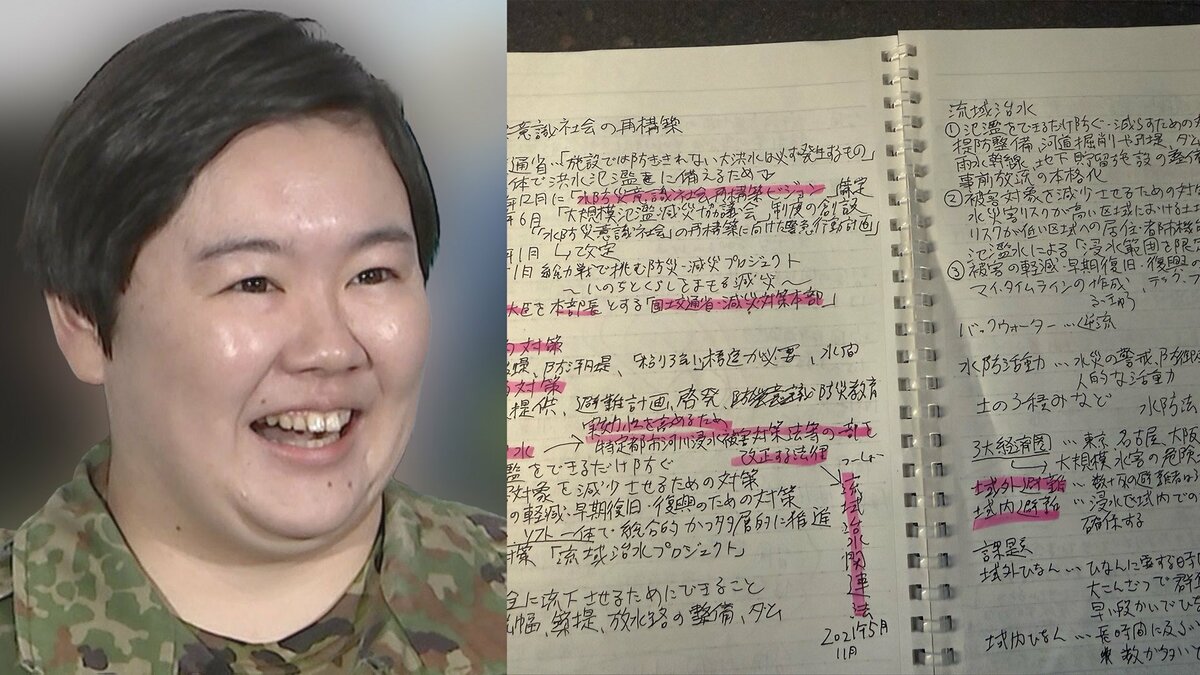 意識社会の再構築
通省…「施設では防ぎきれない大洪水は必ず発生するもの」
体で洪水氾濫に備えるため
年12月に「水防災意識社会再構築ビジョン」策定
年6月「大規模氾濫減災協議会」制度の創設
「水防災意識社会」の再構築に向けた緊急行動計画」
年1月 ↳改定
1月 総力戦で挑む防災・減災プロジェクト
〜いのちとくらしをまもる防災減災〜
大臣を本部長とする「国土交通省・減災対策本部」
対策
堤、防潮堤、粘り強い構造が必要、水門
対策
提供、避難計画、啓発、防災意識 防災教育
実効性を高めるため
水 → 特定都市河川浸水被害対策法等の一部を
改正する法律
濫をできるだけ防ぐ
対象を減少させるための対策
の軽減・早期復旧・復興のための対策
ソフト一体で総合的かつ多層的に推進
対策「流域治水プロジェクト」
流域治水関連法
全に流下させるためにできること
幅、築堤、放水路の整備、ダム
2021年5月
11月
流域治水
①氾濫をできるだけ防ぐ・減らすための
堤防整備、河道掘削や引堤、ダム
雨水幹線、地下貯留施設の整備
事前放流の本格化
②被害対象を減少させるための対
水災害リスクが高い区域における土
リスクが低い区域への居住・都市機
氾濫水による「浸水範囲を限
③被害の軽減・早期復旧・復興の
マイ・タイムラインの作成、テック・フォ
バックウォーター…逆流
水防活動…水災の警戒、防御
人的な活動
土のう積みなど 水防法
3大経済圏…東京 名古屋 大阪
↳大規模水害の危険
域外避難…数十万の避難者
域内避難…浸水区域内での
確保する
課題
域外ひなん…ひなんに要する時
大こんざつで群
早い段かいでひ
域内ひなん…長時間に及ぶ
数が多い